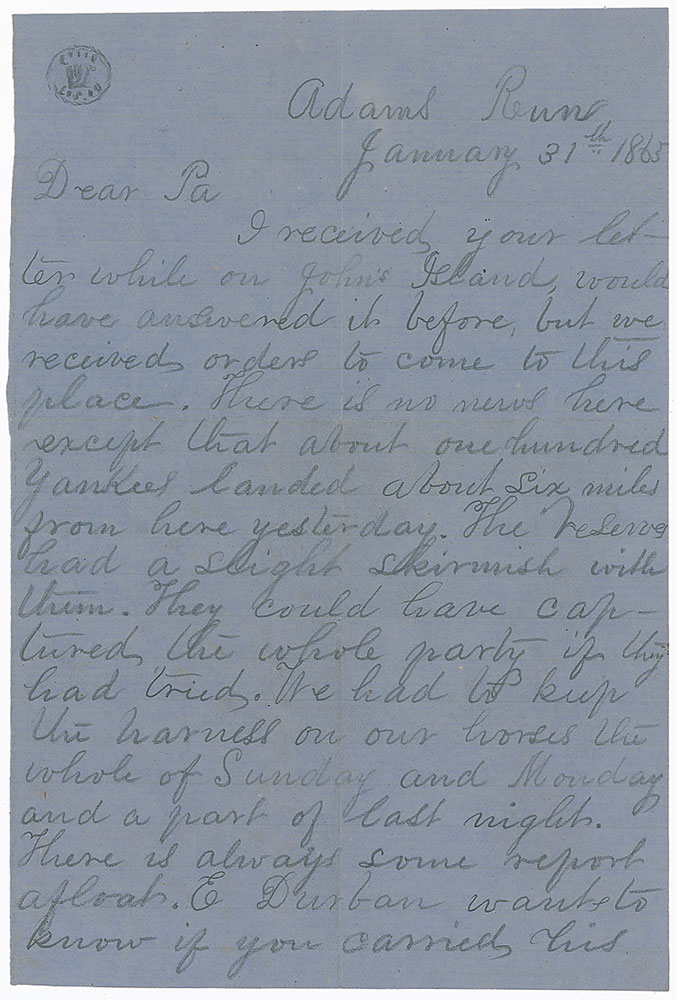 Adams Run
January 31th 1865
Dear Pa
I received your let-
ter while on John's Island, would
have answered it before, but we
received orders to come to this
place. There is no news here
except that about one hundred
Yankees landed about six miles
from here yesterday. The reserves
had a slight skirmish with
them. They could have cap-
tured the whole party if they
had tried. We had to keep
the harness on our horses the
whole of Sunday and Monday
and a part of last night.
There is always some report
afloat. E Durban wants to
know if you carried his